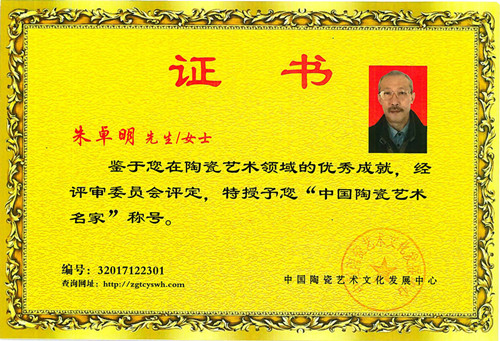 证 书
朱卓明 先生/女士
鉴于您在陶瓷艺术领域的优秀成就，经
评审委员会评定，特授予您“中国陶瓷艺术
名家”称号。
编号：32017122301
查询网址：http://zgtcyswh.com
中国陶瓷艺术文化发展中心